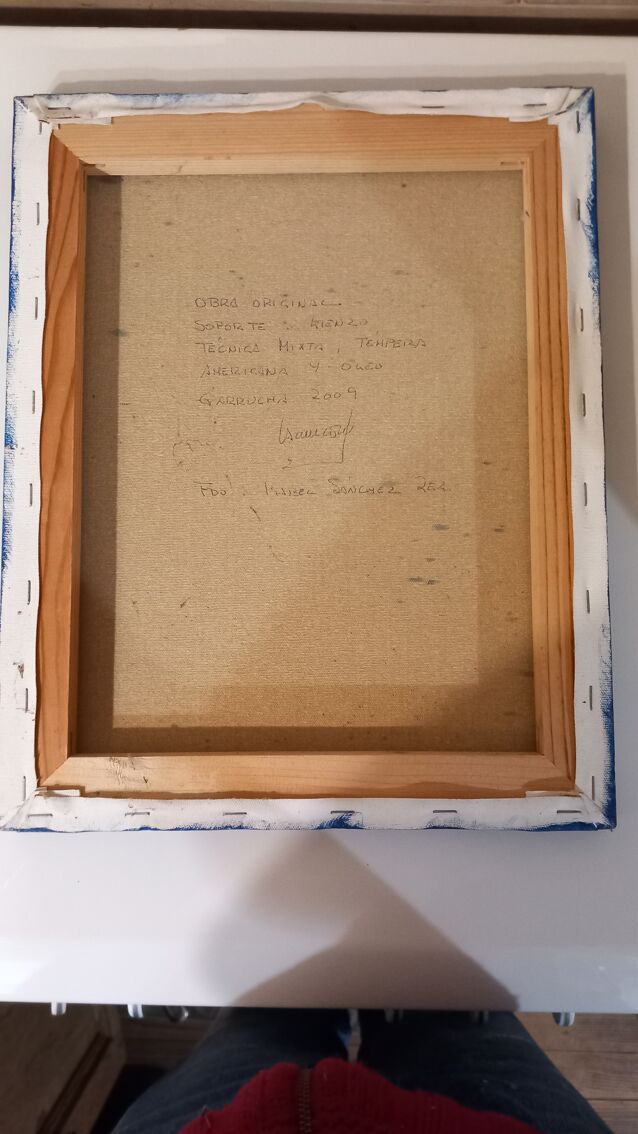 OBRA ORIGINAL.
SOPORTE : LIENZO
TÉCNICA MIXTA, TEMPERA
AMERICANA Y OLEO
GARRUCHA 2009
FDO: SÁNCHEZ